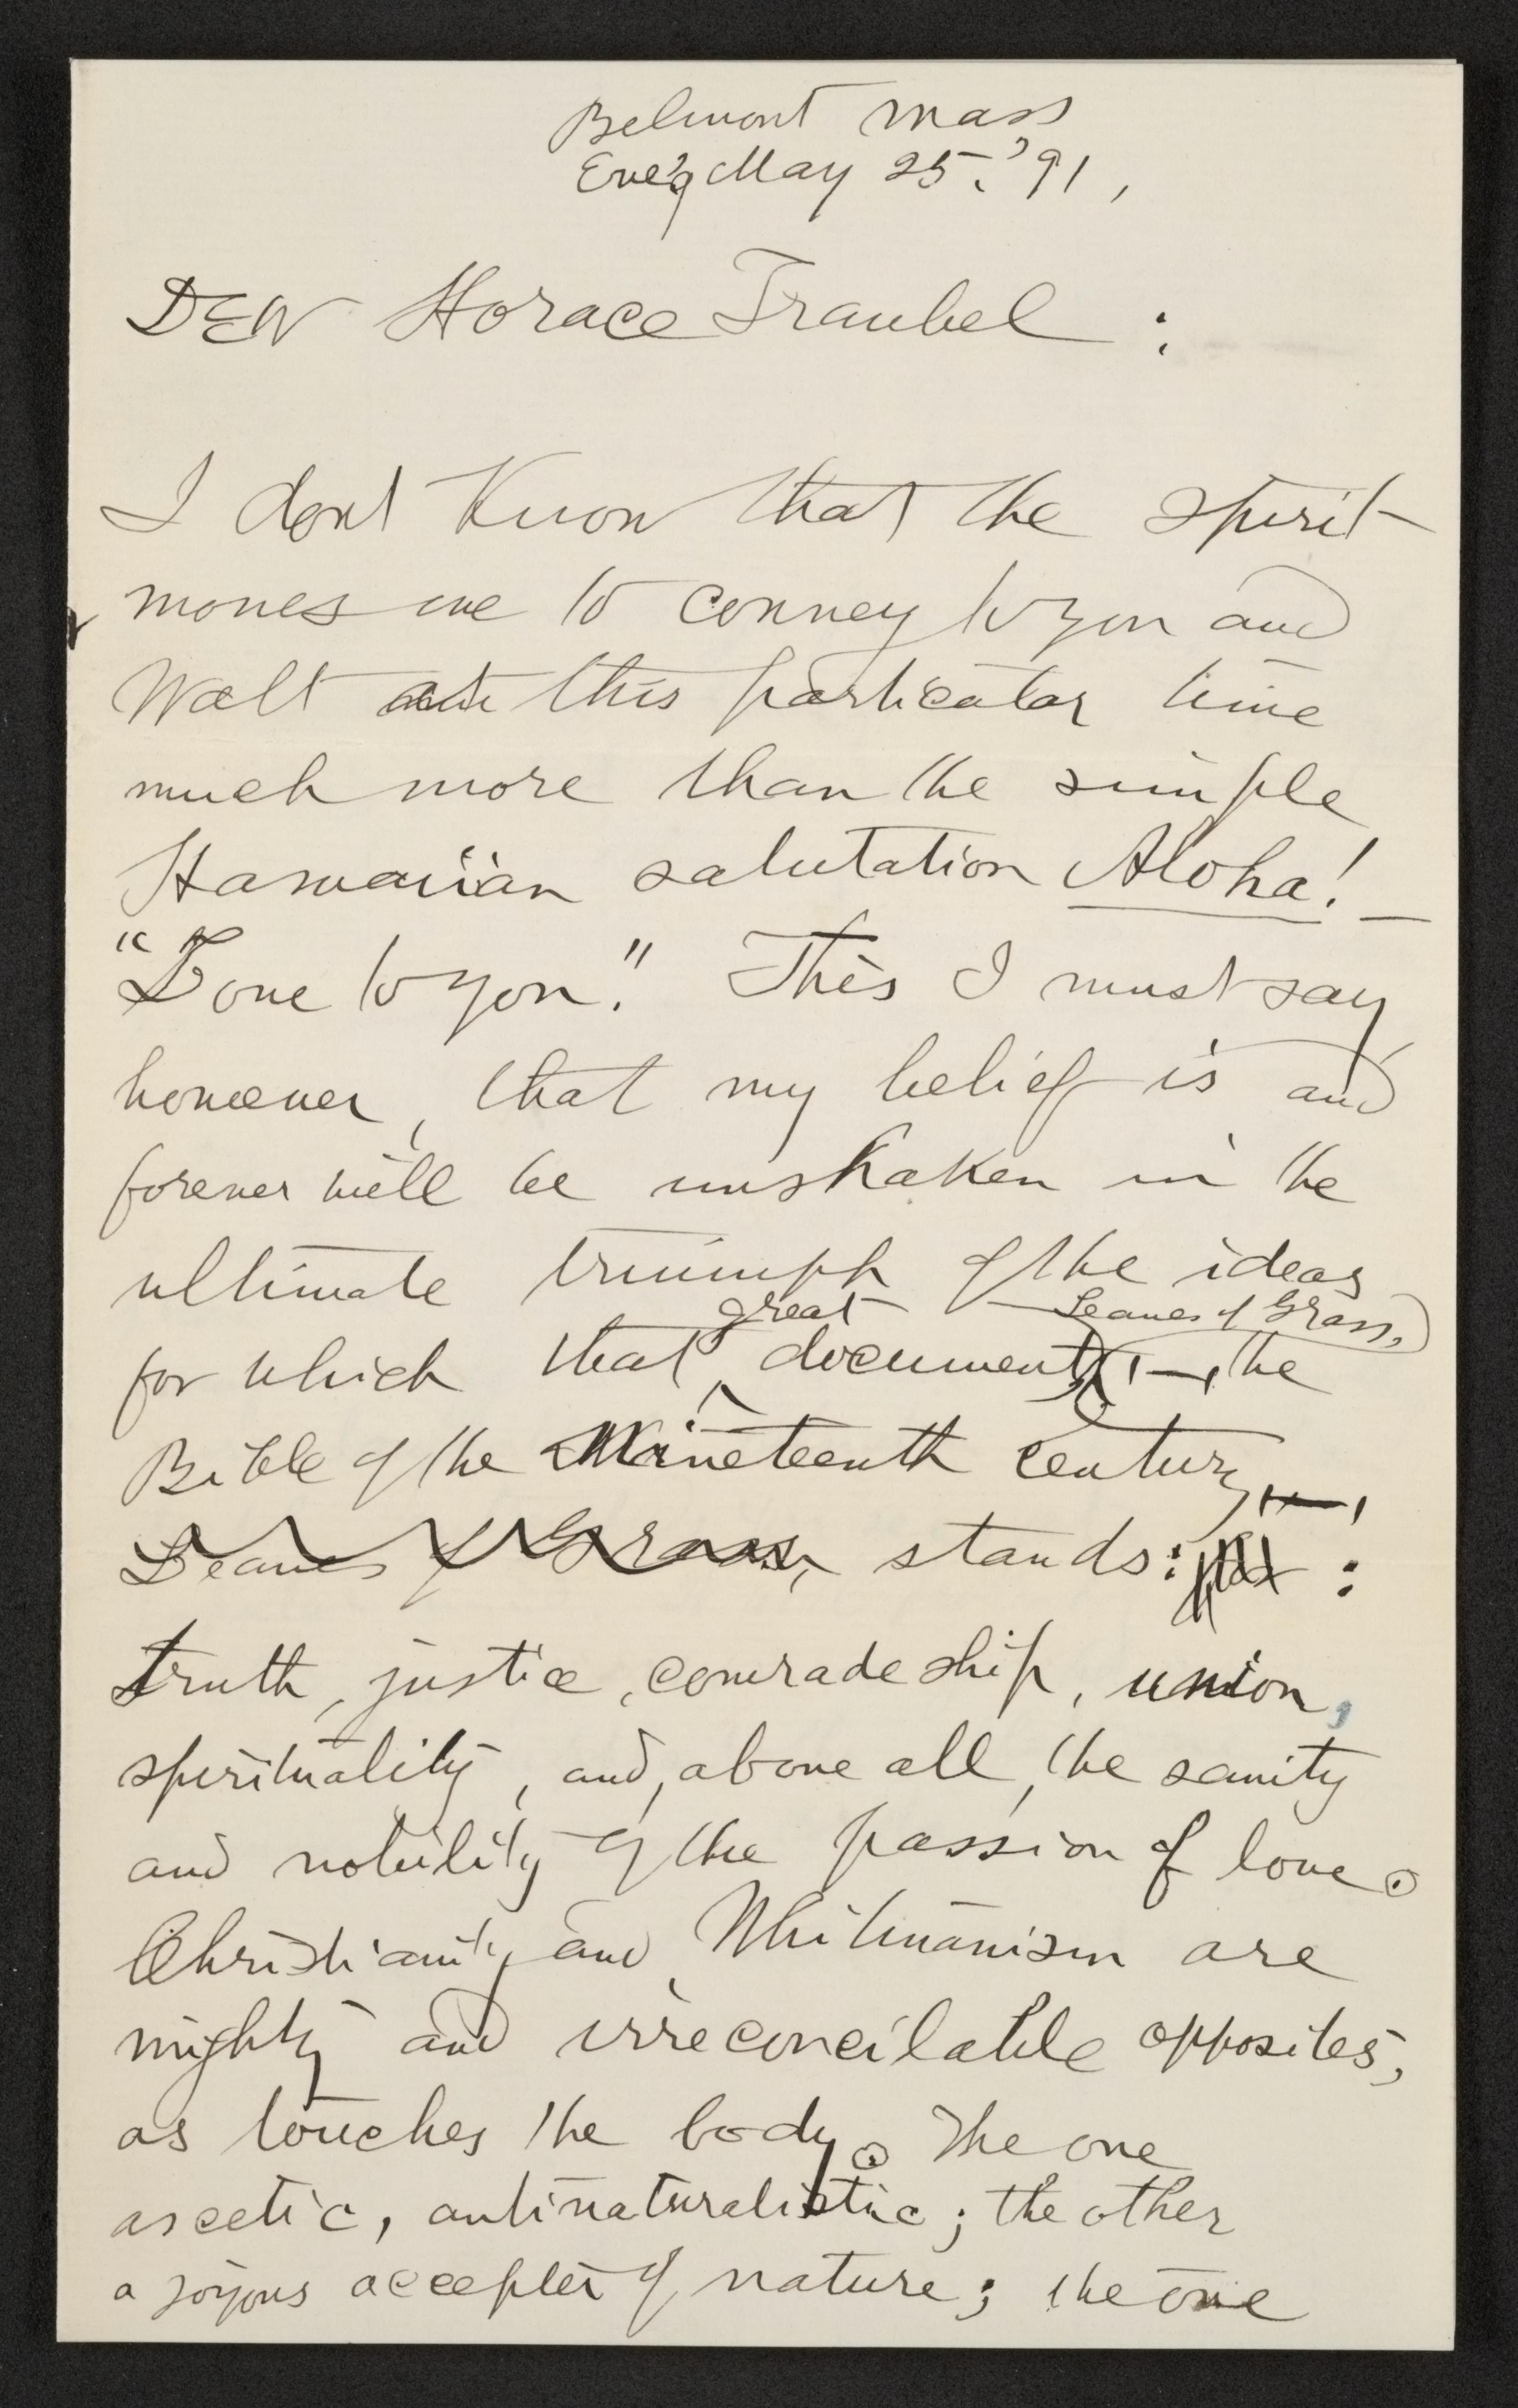 Belmont Mass
Eve'g May 25, '91,
Dear Horace Traubel :
I dont Know that the spirit
moves me to convey to you and
Walt at this particular time
much more than the simple
Hawaiian salutation Aloha! —
"Love to you." This I must say
however, that my belief is and
forever will be unshaken in the
ultimate triumph of the ideas
great — Leaves of Grass,
for which that document, — the
Bible of the Nineteenth Century, —
Leaves of Grass, stands: :
truth, justice, comradeship, union,
spirituality, and, above all, the sanity
and nobility of the passion of love.
Christianity and Whitmanism are
mighty and irreconcilable opposites,
as touches the body. The one
ascetic, antinaturalistic; the other
a joyous accepter of nature; the one